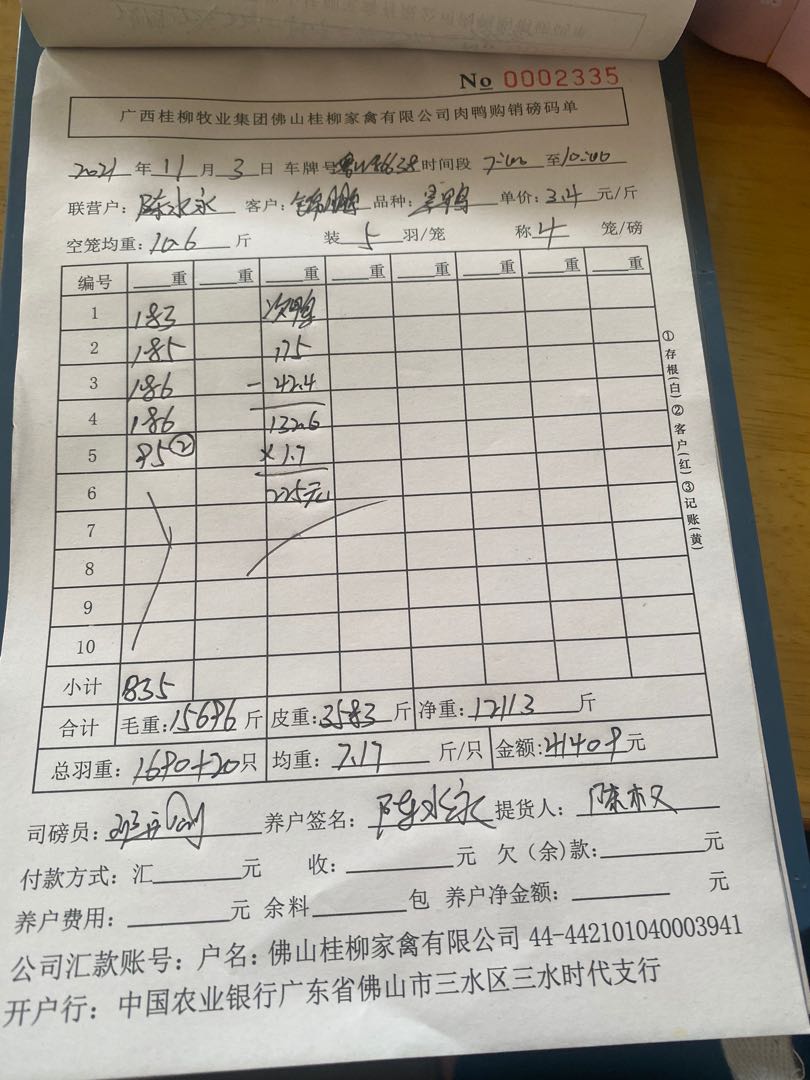 No 0002335
广西桂柳牧业集团佛山桂柳家禽有限公司肉鸭购销磅码单
2021年11月3日 车牌号 时间段 7:00至10:00
联营户：陈水永 客户：锦鹏 品种： 单价：3.4元/斤
空笼均重：10.6斤 装5羽/笼 称4笼/磅
编号 重 重 重 重 重 重 重 重
1 183 次鸭
2 185 175
3 186 - 42.4
4 186 132.6
5 95② ×1.7
6 225元
7
8
9
10
小计 835
合计 毛重：15696斤 皮重：3583斤 净重：12113斤
总羽重：1690+20只 均重：7.17斤/只 金额：41409元
司磅员： 养户签名：陈水永 提货人：
付款方式：汇 元 收： 元 欠（余）款： 元
养户费用： 元 余料 包 养户净金额： 元
公司汇款账号：户名：佛山桂柳家禽有限公司 44-442101040003941
开户行：中国农业银行广东省佛山市三水区三水时代支行
①存根(白)②客户(红)③记账(黄)